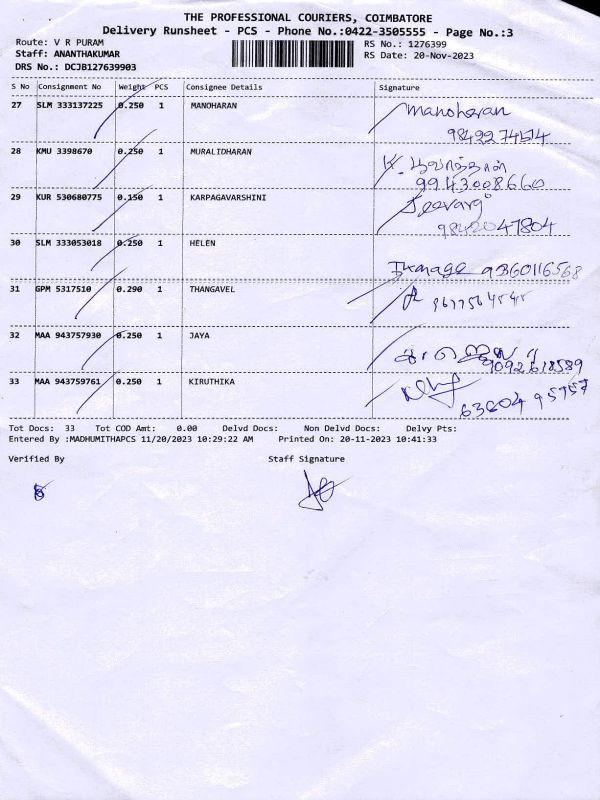 THE PROFESSIONAL COURIERS, COIMBATORE
Delivery Runsheet - PCS - Phone No.:0422-3505555 - Page No.:3
Route: V R PURAM RS No.: 1276399
Staff: ANANTHAKUMAR RS Date: 20-Nov-2023
DRS No.: DCJB127639903
S No Consignment No Weight PCS Consignee Details Signature
27 SLM 333137225 0.250 1 MANOHARAN Manoharan
28 KMU 3398670 0.250 1 MURALIDHARAN
9943008660
29 KUR 530680775 0.150 1 KARPAGAVARSHINI
9842047804
30 SLM 333053018 0.250 1 HELEN
9360116568
31 GPM 5317510 0.290 1 THANGAVEL
32 MAA 943757930 0.250 1 JAYA
9092618589
33 MAA 943759761 0.250 1 KIRUTHIKA
63804 95757
Tot Docs: 33 Tot COD Amt: 0.00 Delvd Docs: Non Delvd Docs: Delvy Pts:
Entered By :MADHUMITHAPCS 11/20/2023 10:29:22 AM Printed On: 20-11-2023 10:41:33
Verified By Staff Signature